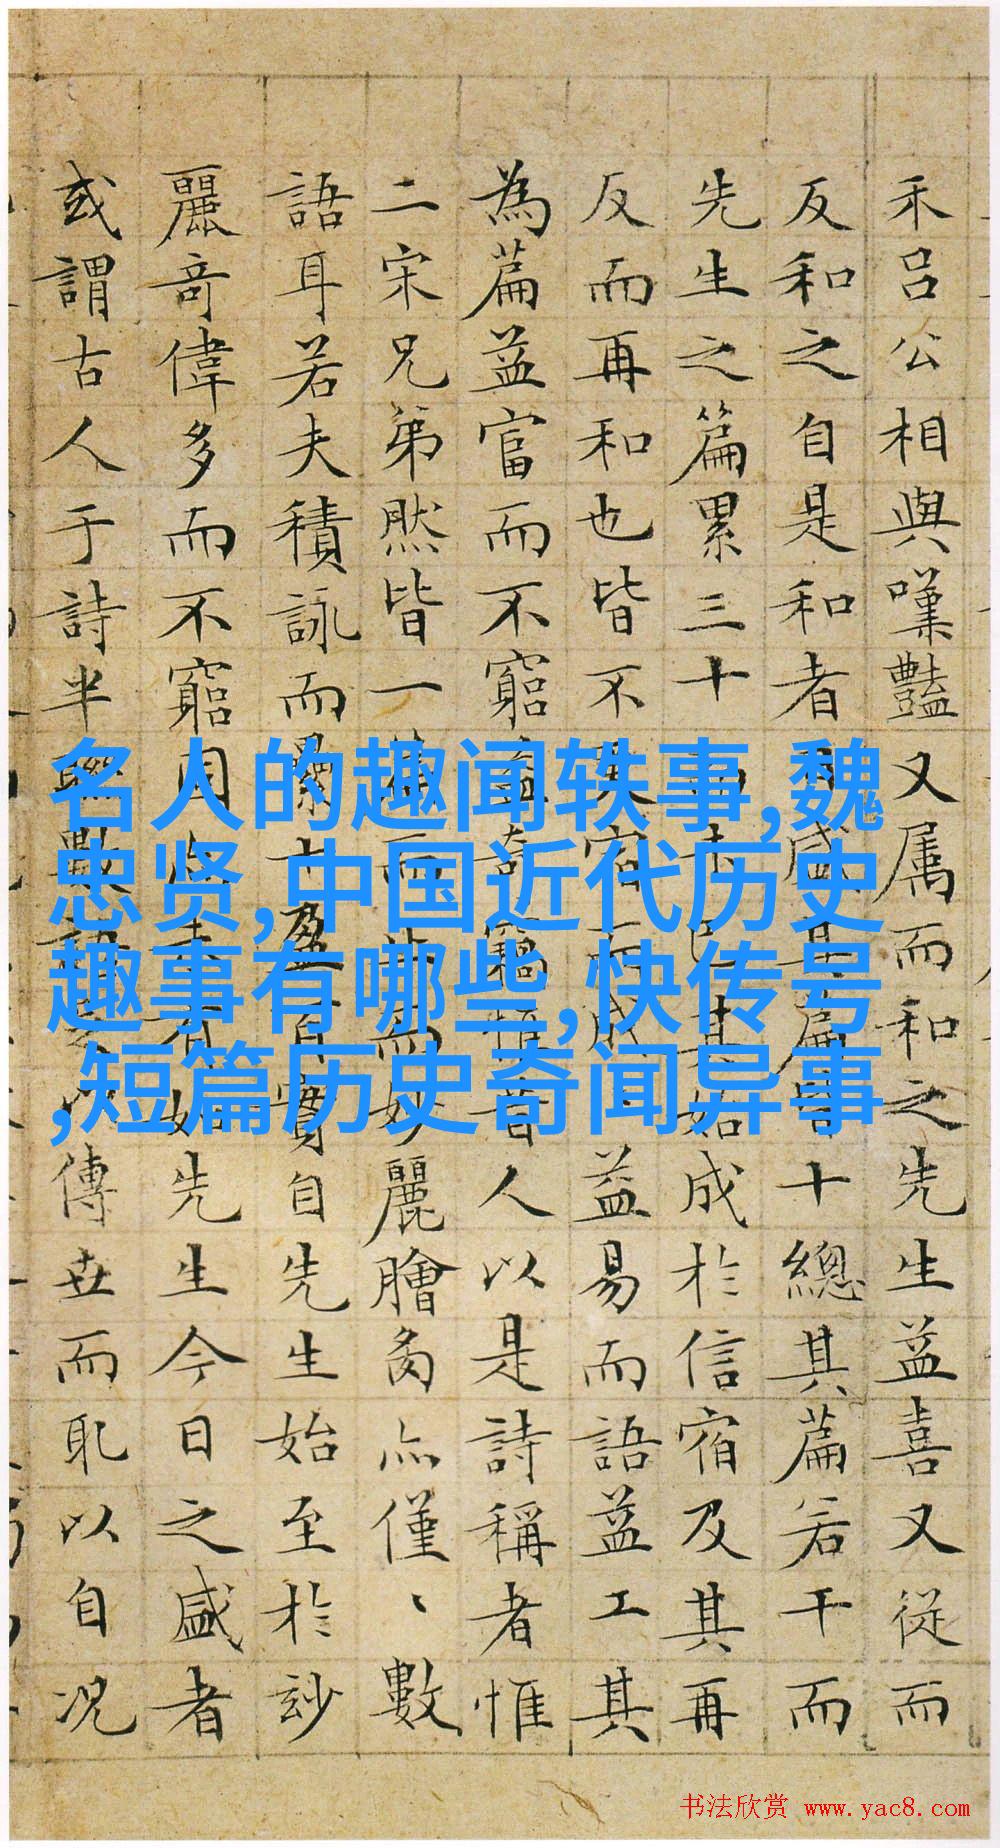 禾吕公相與嘆豔又属而和之先生益喜又從而
反和之自是和者盛其篇十總其篇若干而
先生之篇累三十已其始成於信宿及其再
反而再和也皆不宿而成益易而語益工其
為篇益富而不窮益奇竊恠昔人以是詩稱者惟
二宋兄弟然皆一而而妙麗膾炙亦僅、數
語耳若夫積詠而累十盈百實自先生始至於玅
麗奇偉多而不窮固未有如先生今日之盛者
或謂古人于詩半聯數傳世而耻以自况
名人的趣闻轶事,魏
忠贤,中国近代历史
趣事有哪些,快传号
,短篇历史奇闻异事
书法欣赏 www.yac8.com